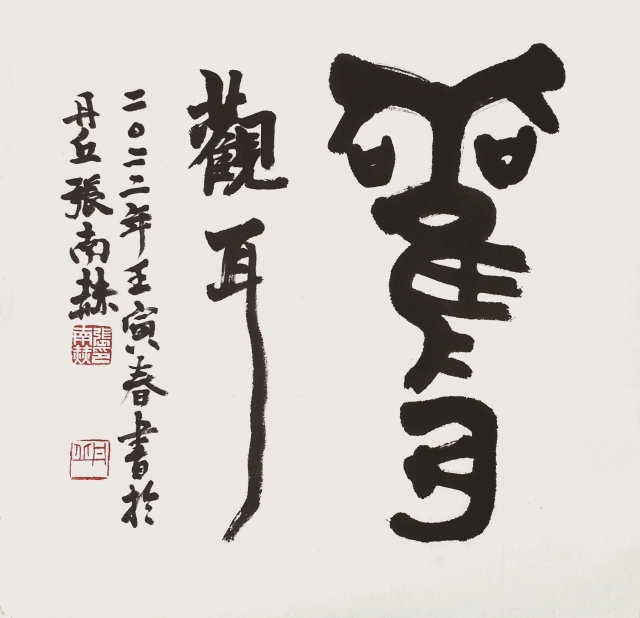 雚耳
觀耳
二〇二二年壬寅春書於
丹丘張南赫